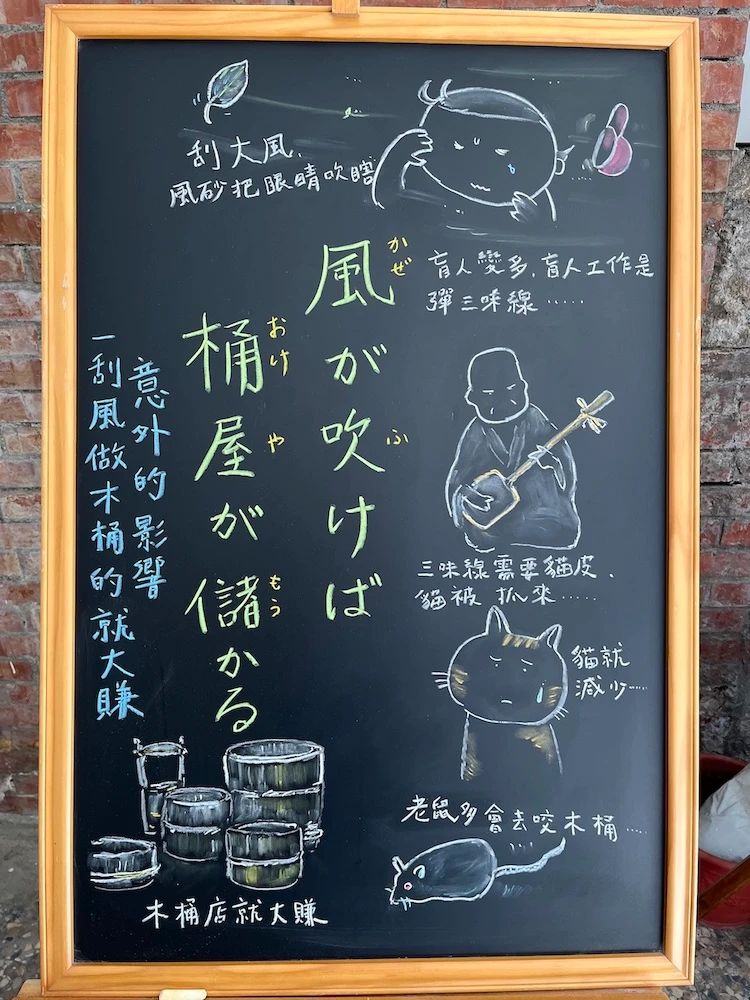 刮大風、
風砂把眼睛吹瞎
風が吹けば
かぜ
ふ
桶屋が儲かる
おけ
や
もう
意外的影響
一刮風做木桶的就大賺
盲人變多,盲人工作是
彈三味線……
三味線需要貓皮、
貓被抓來……
貓就
減少……
老鼠多會去咬木桶……
木桶店就大賺